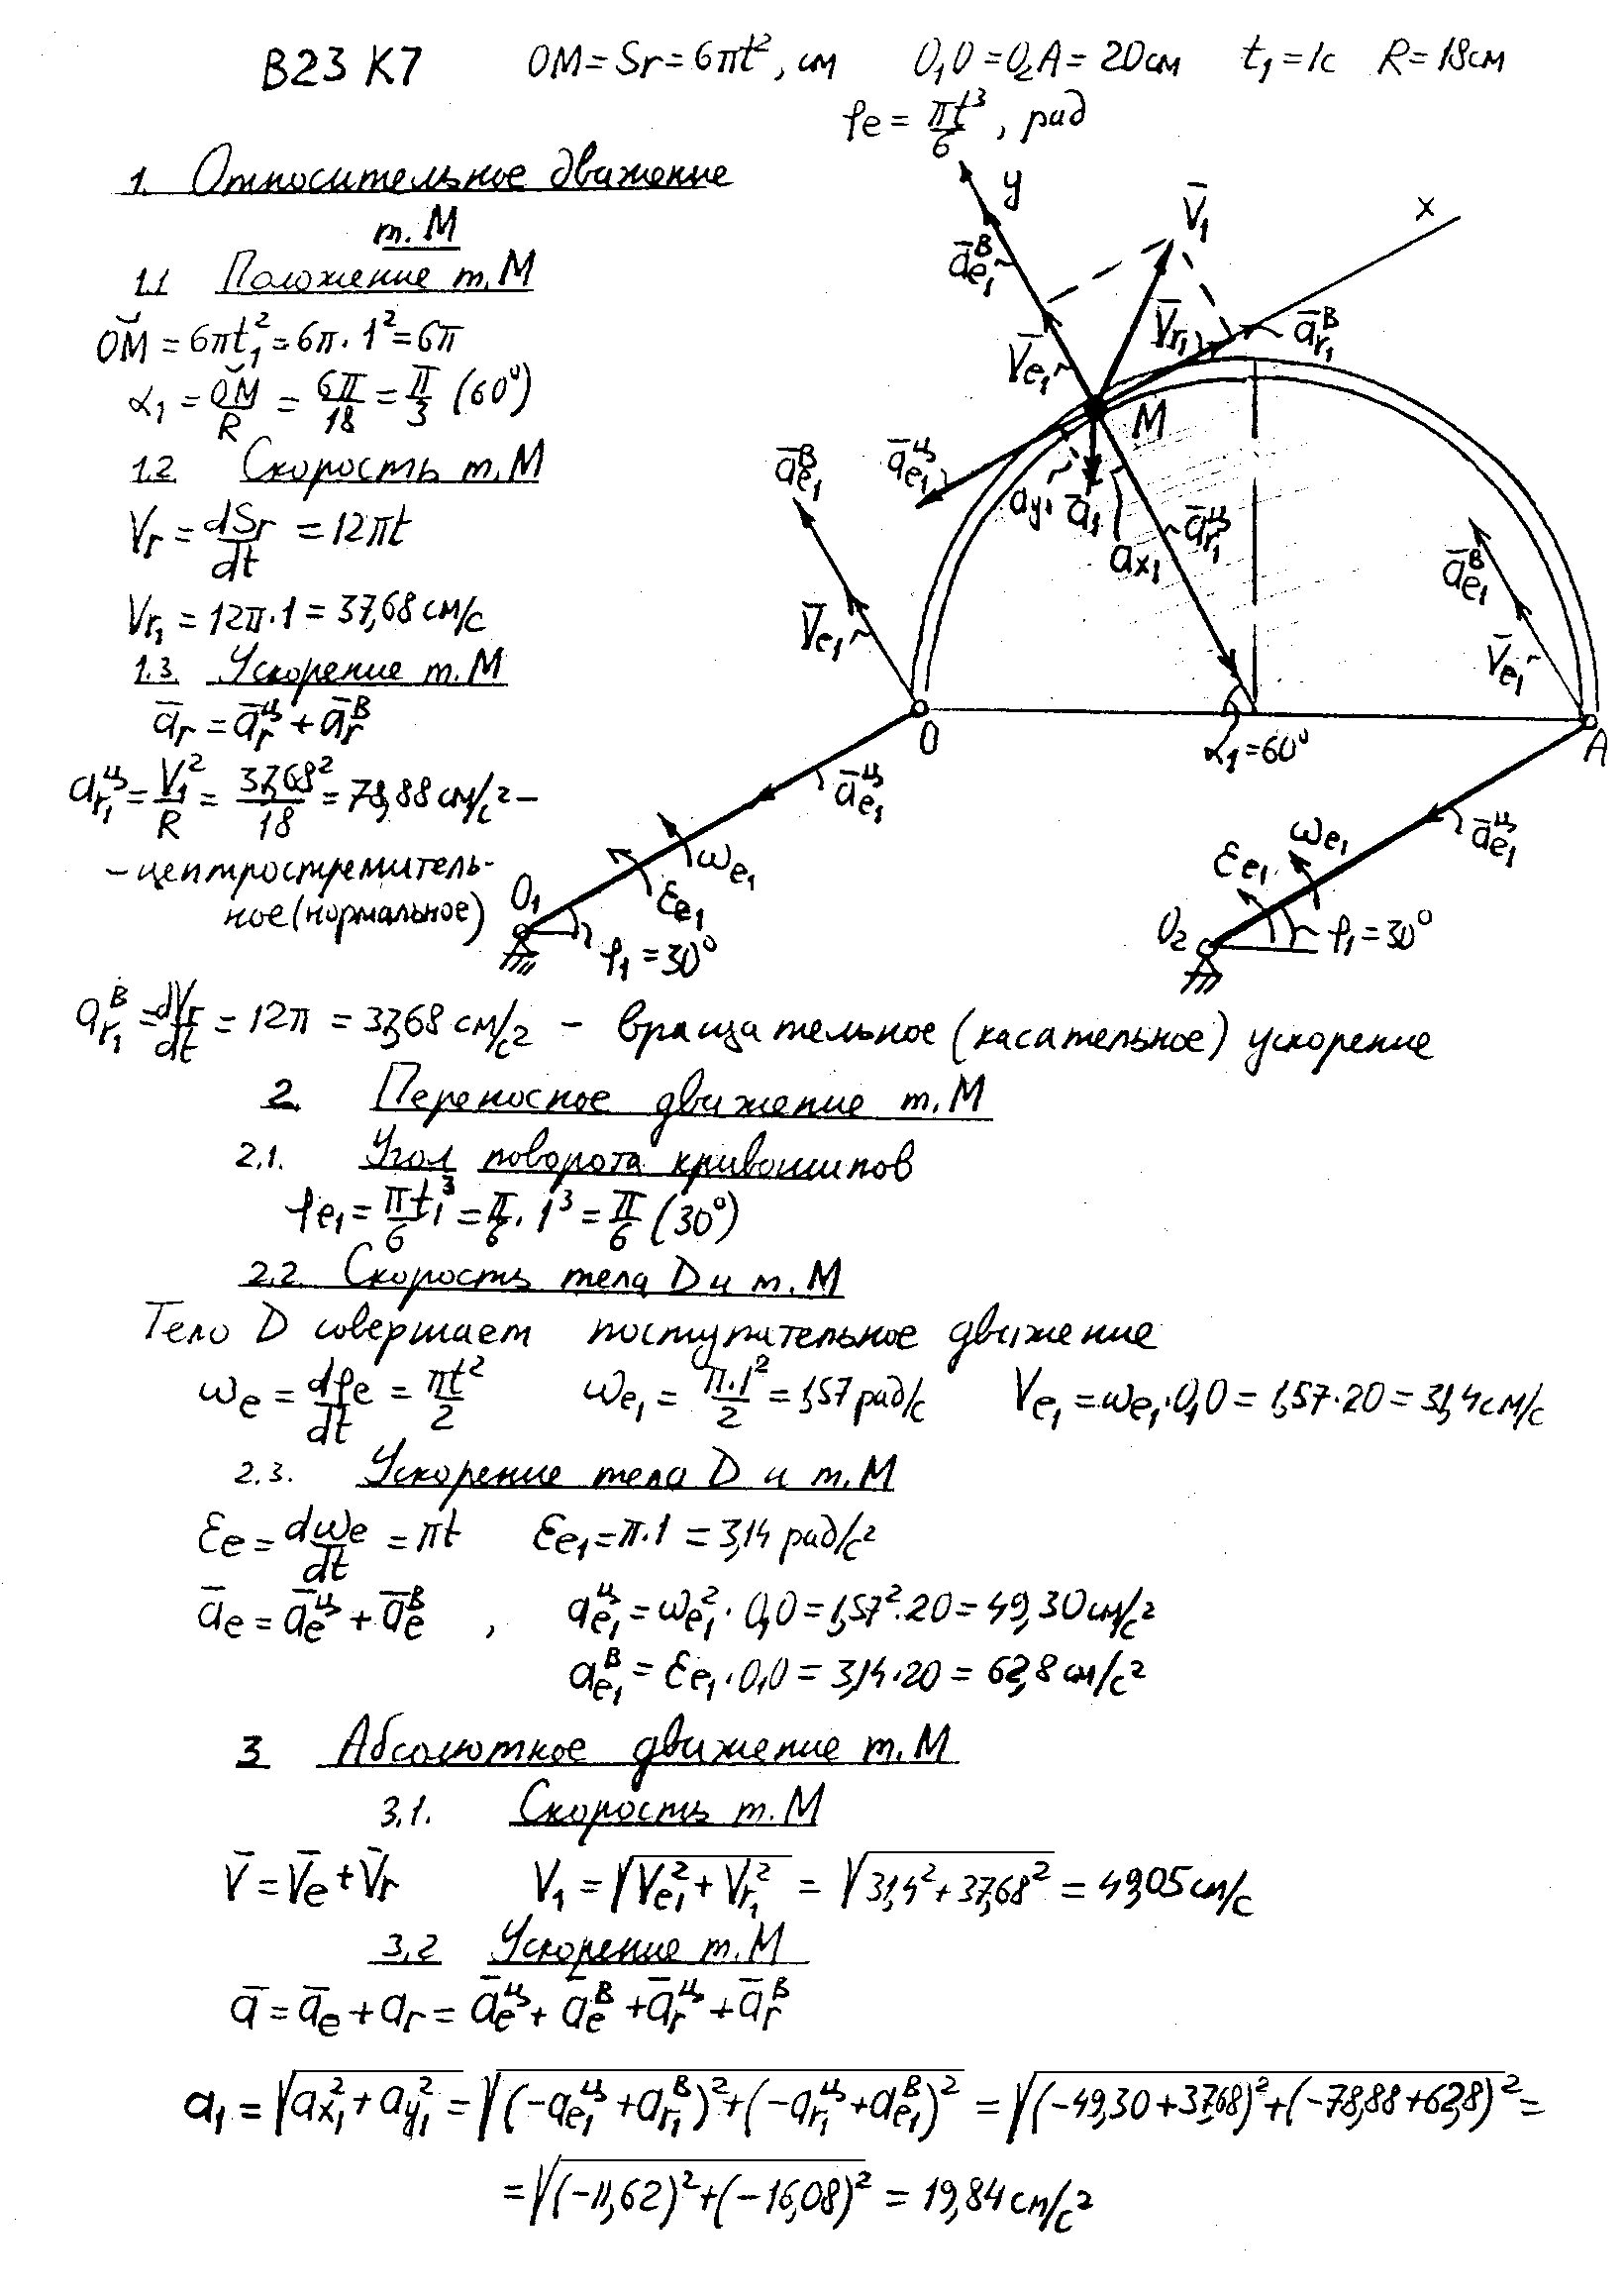 B23 K7 OM = Sr = 6πt², см O₁O = O₂A = 20см t₁ = 1с R = 18см
φe = πt³/6, рад
1. Относительное движение
т. М
1.1 Положение т. М
OM = 6πt₁² = 6π · 1² = 6π
α₁ = OM/R = 6π/18 = π/3 (60⁰)
1.2 Скорость т. М
Vr = dSr/dt = 12πt
Vr₁ = 12π·1 = 37,68 см/с
1.3. Ускорение т. М
a̅r = a̅rᶣ + a̅rᴮ
ar₁ᶣ = V₁²/R = 37,68²/18 = 78,88 см/с² –
– центростремитель-
ное (нормальное)
y
x
V̅₁
a̅e₁ᴮ
V̅r₁
a̅r₁ᴮ
V̅e₁
M
a̅e₁ᶣ
a̅e₁ᴮ
ay₁
a̅₁
ax₁
a̅r₁ᶣ
a̅e₁ᴮ
V̅e₁
V̅e₁
O
α₁=60⁰
A
a̅e₁ᶣ
ωe₁
εe₁
O₁
φ₁ = 30⁰
a̅e₁ᶣ
ωe₁
εe₁
O₂
φ₁ = 30⁰
ar₁ᴮ = dVr/dt = 12π = 37,68 см/с² – вращательное (касательное) ускорение
2. Переносное движение т. М
2.1. Угол поворота кривошипов
φe₁ = πt₁³/6 = π/6 · 1³ = π/6 (30⁰)
2.2. Скорость тела D и т. М
Тело D совершает поступательное движение
ωe = dφe/dt = πt²/2 ωe₁ = π·1²/2 = 1,57 рад/с Ve₁ = ωe₁·O₁O = 1,57·20 = 31,4 см/с
2.3. Ускорение тела D и т. М
εe = dωe/dt = πt εe₁ = π·1 = 3,14 рад/с²
a̅e = a̅eᶣ + a̅eᴮ , ae₁ᶣ = ωe₁² · O₁O = 1,57²·20 = 49,30 см/с²
ae₁ᴮ = εe₁·O₁O = 3,14·20 = 62,8 см/с²
3 Абсолютное движение т. М
3.1. Скорость т. М
V̅ = V̅e + V̅r V₁ = √(Ve₁² + Vr₁²) = √(31,4² + 37,68²) = 49,05 см/с
3.2 Ускорение т. М
a̅ = a̅e + ar = a̅eᶣ + a̅eᴮ + a̅rᶣ + a̅rᴮ
a₁ = √(ax₁² + ay₁²) = √((-ae₁ᶣ + ar₁ᴮ)² + (-ar₁ᶣ + ae₁ᴮ)²) = √((-49,30 + 37,68)² + (-78,88 + 62,8)²) =
= √((-11,62)² + (-16,08)²) = 19,84 см/с²